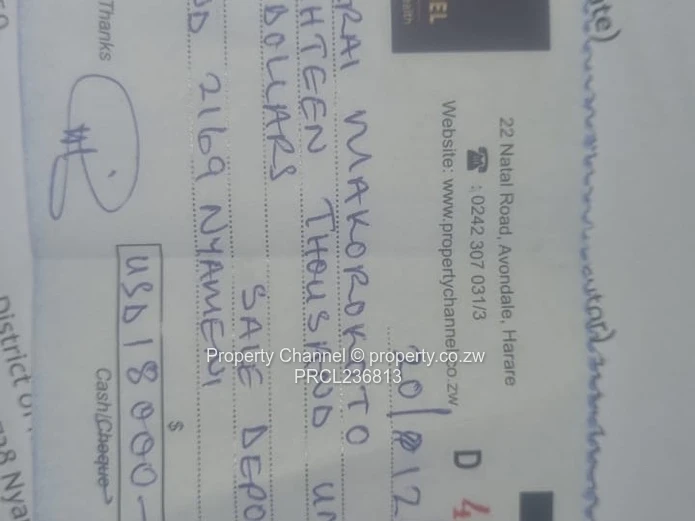 EL
ealth
22 Natal Road, Avondale, Harare
☎ : 0242 307 031/3
Website: www.propertychannel.co.zw
D 4
20/12
RAI MAKOROKOTO
HTEEN THOUSAND UN
DOLLARS SALE DEPO
2169 NYAMENI
Thanks
$
USD 18 000-
Cash/Cheque
Property Channel © property.co.zw
PRCL236813
District